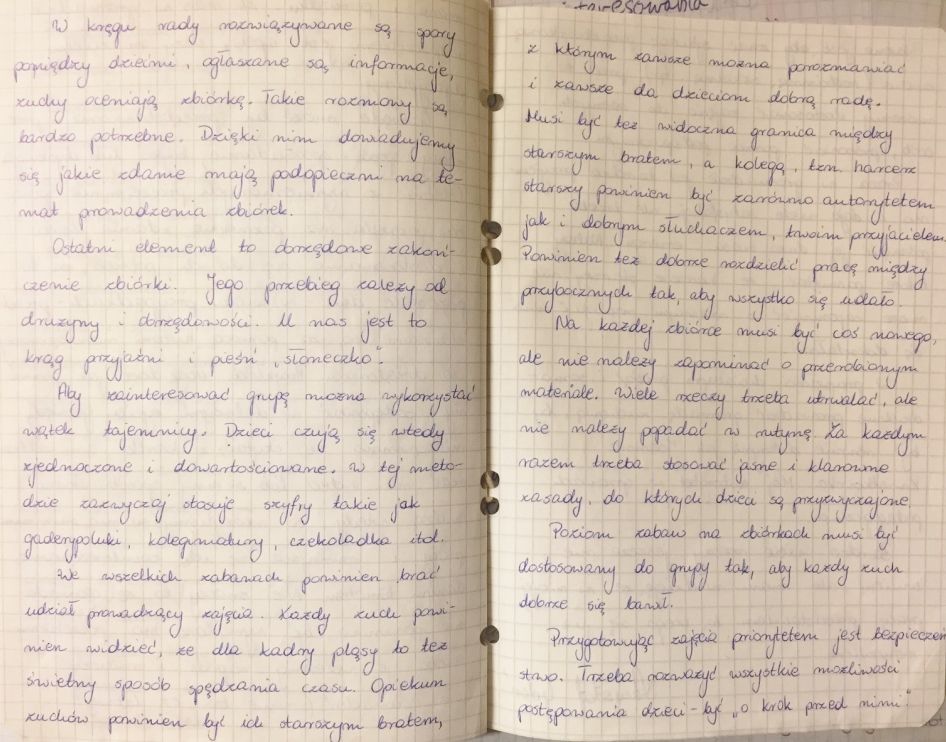 W kręgu rady rozwiązywane są spory
pomiędzy dziećmi, ogłaszane są informacje,
zuchy oceniają zbiórkę. Takie rozmowy są
bardzo potrzebne. Dzięki nim dowiadujemy
się jakie zdanie mają podopieczni na te-
mat prowadzenia zbiórek.
Ostatni element to obrzędowe zakoń-
czenie zbiórki. Jego przebieg zależy od
drużyny i obrzędowości. U nas jest to
krąg przyjaźni i pieśń „słoneczko".
Aby zainteresować grupę można wykorzystać
wątek tajemnicy. Dzieci czują się wtedy
zjednoczone i dowartościowane. W tej meto-
dzie zazwyczaj stosuję szyfry takie jak
gaderypoluki, kolegiminatury, czekoladka itd.
We wszelkich zabawach powinien brać
udział prowadzący zajęcia. Każdy zuch powi-
nien widzieć, że dla kadry pląsy to też
świetny sposób spędzania czasu. Opiekun
zuchów powinien być ich starszym bratem,
interesowania
z którym zawsze można porozmawiać
i zawsze da dzieciom dobrą radę.
Musi być też widoczna granica między
starszym bratem, a kolegą, tzn. harcerz
starszy powinien być zarówno autorytetem
jak i dobrym słuchaczem, twoim przyjacielem.
Powinien też dobrze rozdzielić pracę między
przybocznych tak, aby wszystko się udało.
Na każdej zbiórce musi być coś nowego,
ale nie należy zapominać o przerobionym
materiale. Wiele rzeczy trzeba utrwalać, ale
nie należy popadać w rutynę. Za każdym
razem trzeba stosować jasne i klarowne
zasady, do których dzieci są przyzwyczajone.
Poziom zabaw na zbiórkach musi być
dostosowany do grupy tak, aby każdy zuch
dobrze się bawił.
Przygotowując zajęcia priorytetem jest bezpieczeń
stwo. Trzeba rozważyć wszystkie możliwości
postępowania dzieci - być „o krok przed nimi".